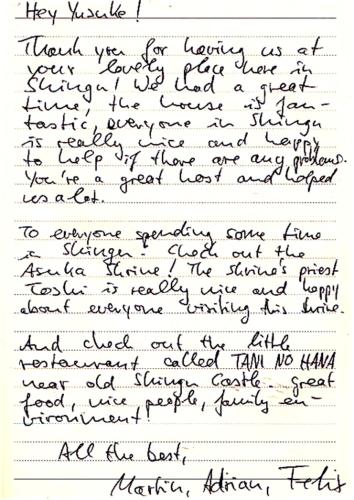 Hey Yusuke!
Thank you for having us at
your lovely place here in
Shingu! We had a great
time, the house is fan-
tastic, everyone in Shingu
is really nice and happy
to help if there are any problems.
You're a great host and helped
us a lot.
To everyone spending some time
in Shingu: Check out the
Asuka Shrine! The shrine's priest
Toshi is really nice and happy
about everyone visiting this shrine.
And check out the little
restaurant called TANI NO HANA
near old Shingu Castle - great
food, nice people, family en-
vironment!
All the best,
Martin, Adrian, Felix